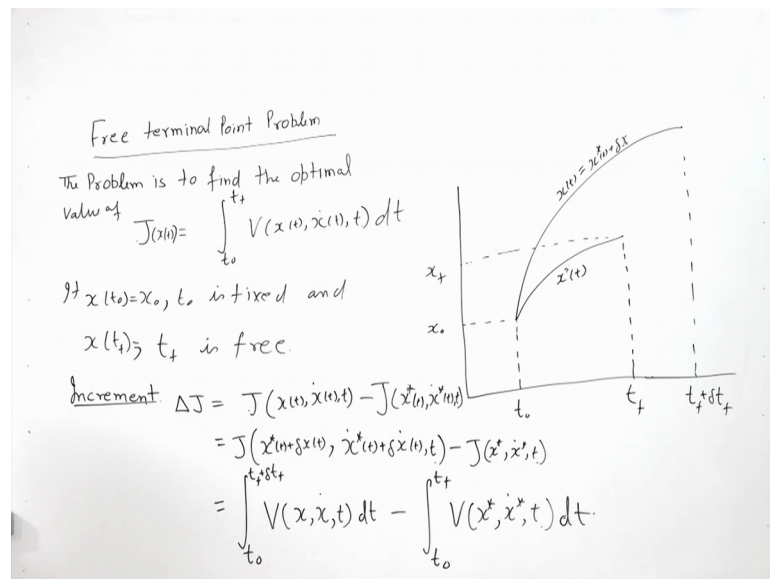 Free terminal Point Problem
The Problem is to find the optimal
value of J(x(t)) = ∫_{t₀}^{t_f} V(x(t), ẋ(t), t) dt
If x(t₀)=x₀, t₀ is fixed and
x(t_f), t_f is free.
Increment ΔJ = J(x(t), ẋ(t), t) − J(x*(t), ẋ*(t), t)
= J(x*(t)+δx(t), ẋ*(t)+δẋ(t), t) − J(x*, ẋ*, t)
= ∫_{t₀}^{t_f+δt_f} V(x, ẋ, t) dt − ∫_{t₀}^{t_f} V(x*, ẋ*, t) dt.
x(t) = x*(t)+δx
x_f
x*(t)
x₀
t₀ t_f t_f+δt_f